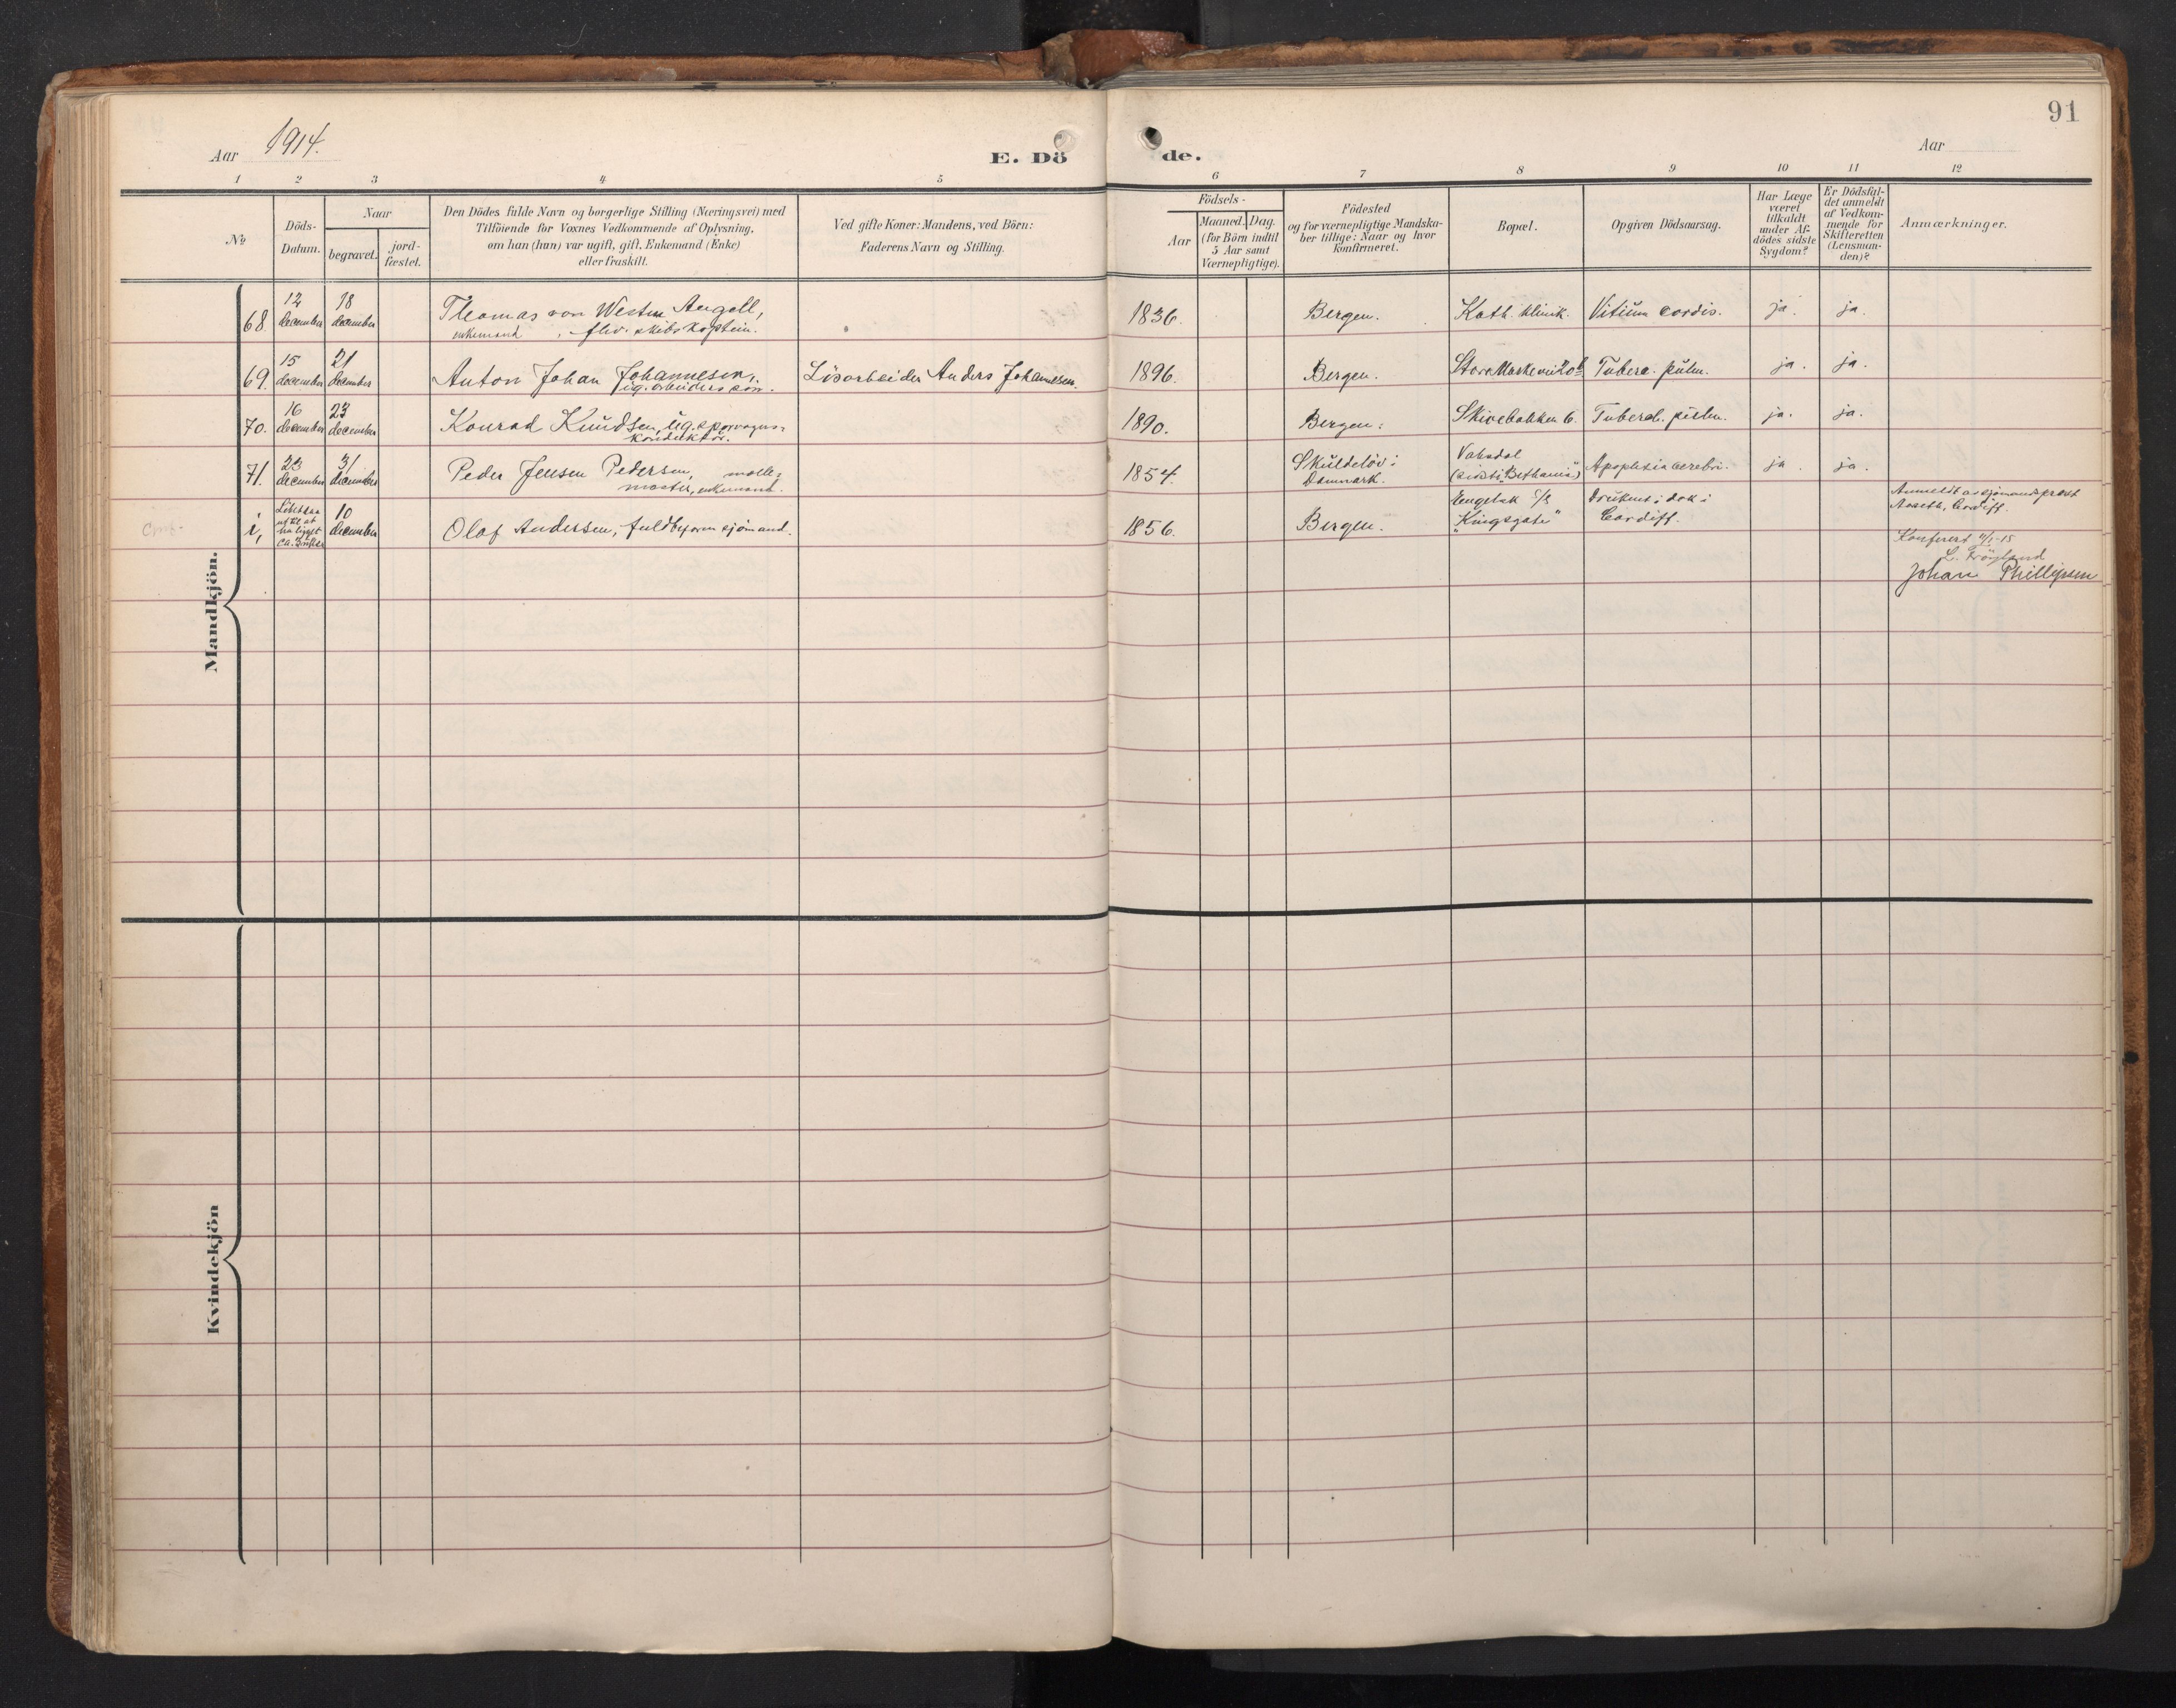 91
Aar 1914.
E. Dö de.
Aar
1 2 3 4 5 6 7 8 9 10 11 12
No
Döds-
Datum.
Naar
begravet.
jord-
fæstet.
Den Dödes fulde Navn og borgerlige Stilling (Næringsvei) med
Tilföiende for Voxnes Vedkommende af Oplysning,
om han (hun) var ugift, gift, Enkemand (Enke)
eller fraskilt.
Ved gifte Koner: Mandens, ved Börn:
Faderens Navn og Stilling.
Födsels-
Aar
Maaned. Dag.
(for Börn indtil
5 Aar samt
Værnepligtige).
Födested
og for værnepligtige Mandska-
ber tillige: Naar og hvor
konfirmeret.
Bopæl.
Opgiven Dödsaarsag.
Har Læge
været
tilkaldt
under Af-
dödes sidste
Sygdom?
Er Dödsfal-
det anmeldt
af Vedkom-
mende for
Skifteretten
(Lensman-
den)?
Anmærkninger.
Mandkjön.
68 12 december 18 december Thomas von Westen Angell,
enkemand, fhv. skibskaptein.
1836. Bergen. Kath. klinik. Vitium cordis. ja. ja.
69. 15 december 21 december Anton Johan Johannesen,
ug. arbeiders søn.
Lösarbeider Anders Johannesen.
1896. Bergen. Store Markevei 20b Tuberc. pulm. ja. ja.
70. 16 december 23 december Konrad Knudsen, ug. sporvogns-
konduktør.
1890. Bergen. Skivebakken 6. Tubercl. pulm. ja. ja.
71. 23 december 31 december Peder Jensen Pedersen, mølle-
mester, enkemand.
1854. Skuldelöv i
Danmark.
Vaksdal
(sidst "Bethania")
Apoplexia cerebri. ja. ja.
i, 10 december Olaf Andersen, fuldbefaren sjømand.
ca. 3 uker
1856. Bergen. Engelsk S/S
"Kingsgate"
Druknet i dok i
Cardiff.
Anmeldt av sjömandsprest
Aaseth, Cardiff.
Konferert 11/1-15
L. Fröyland
Johan Phillipsen
Kvindekjön